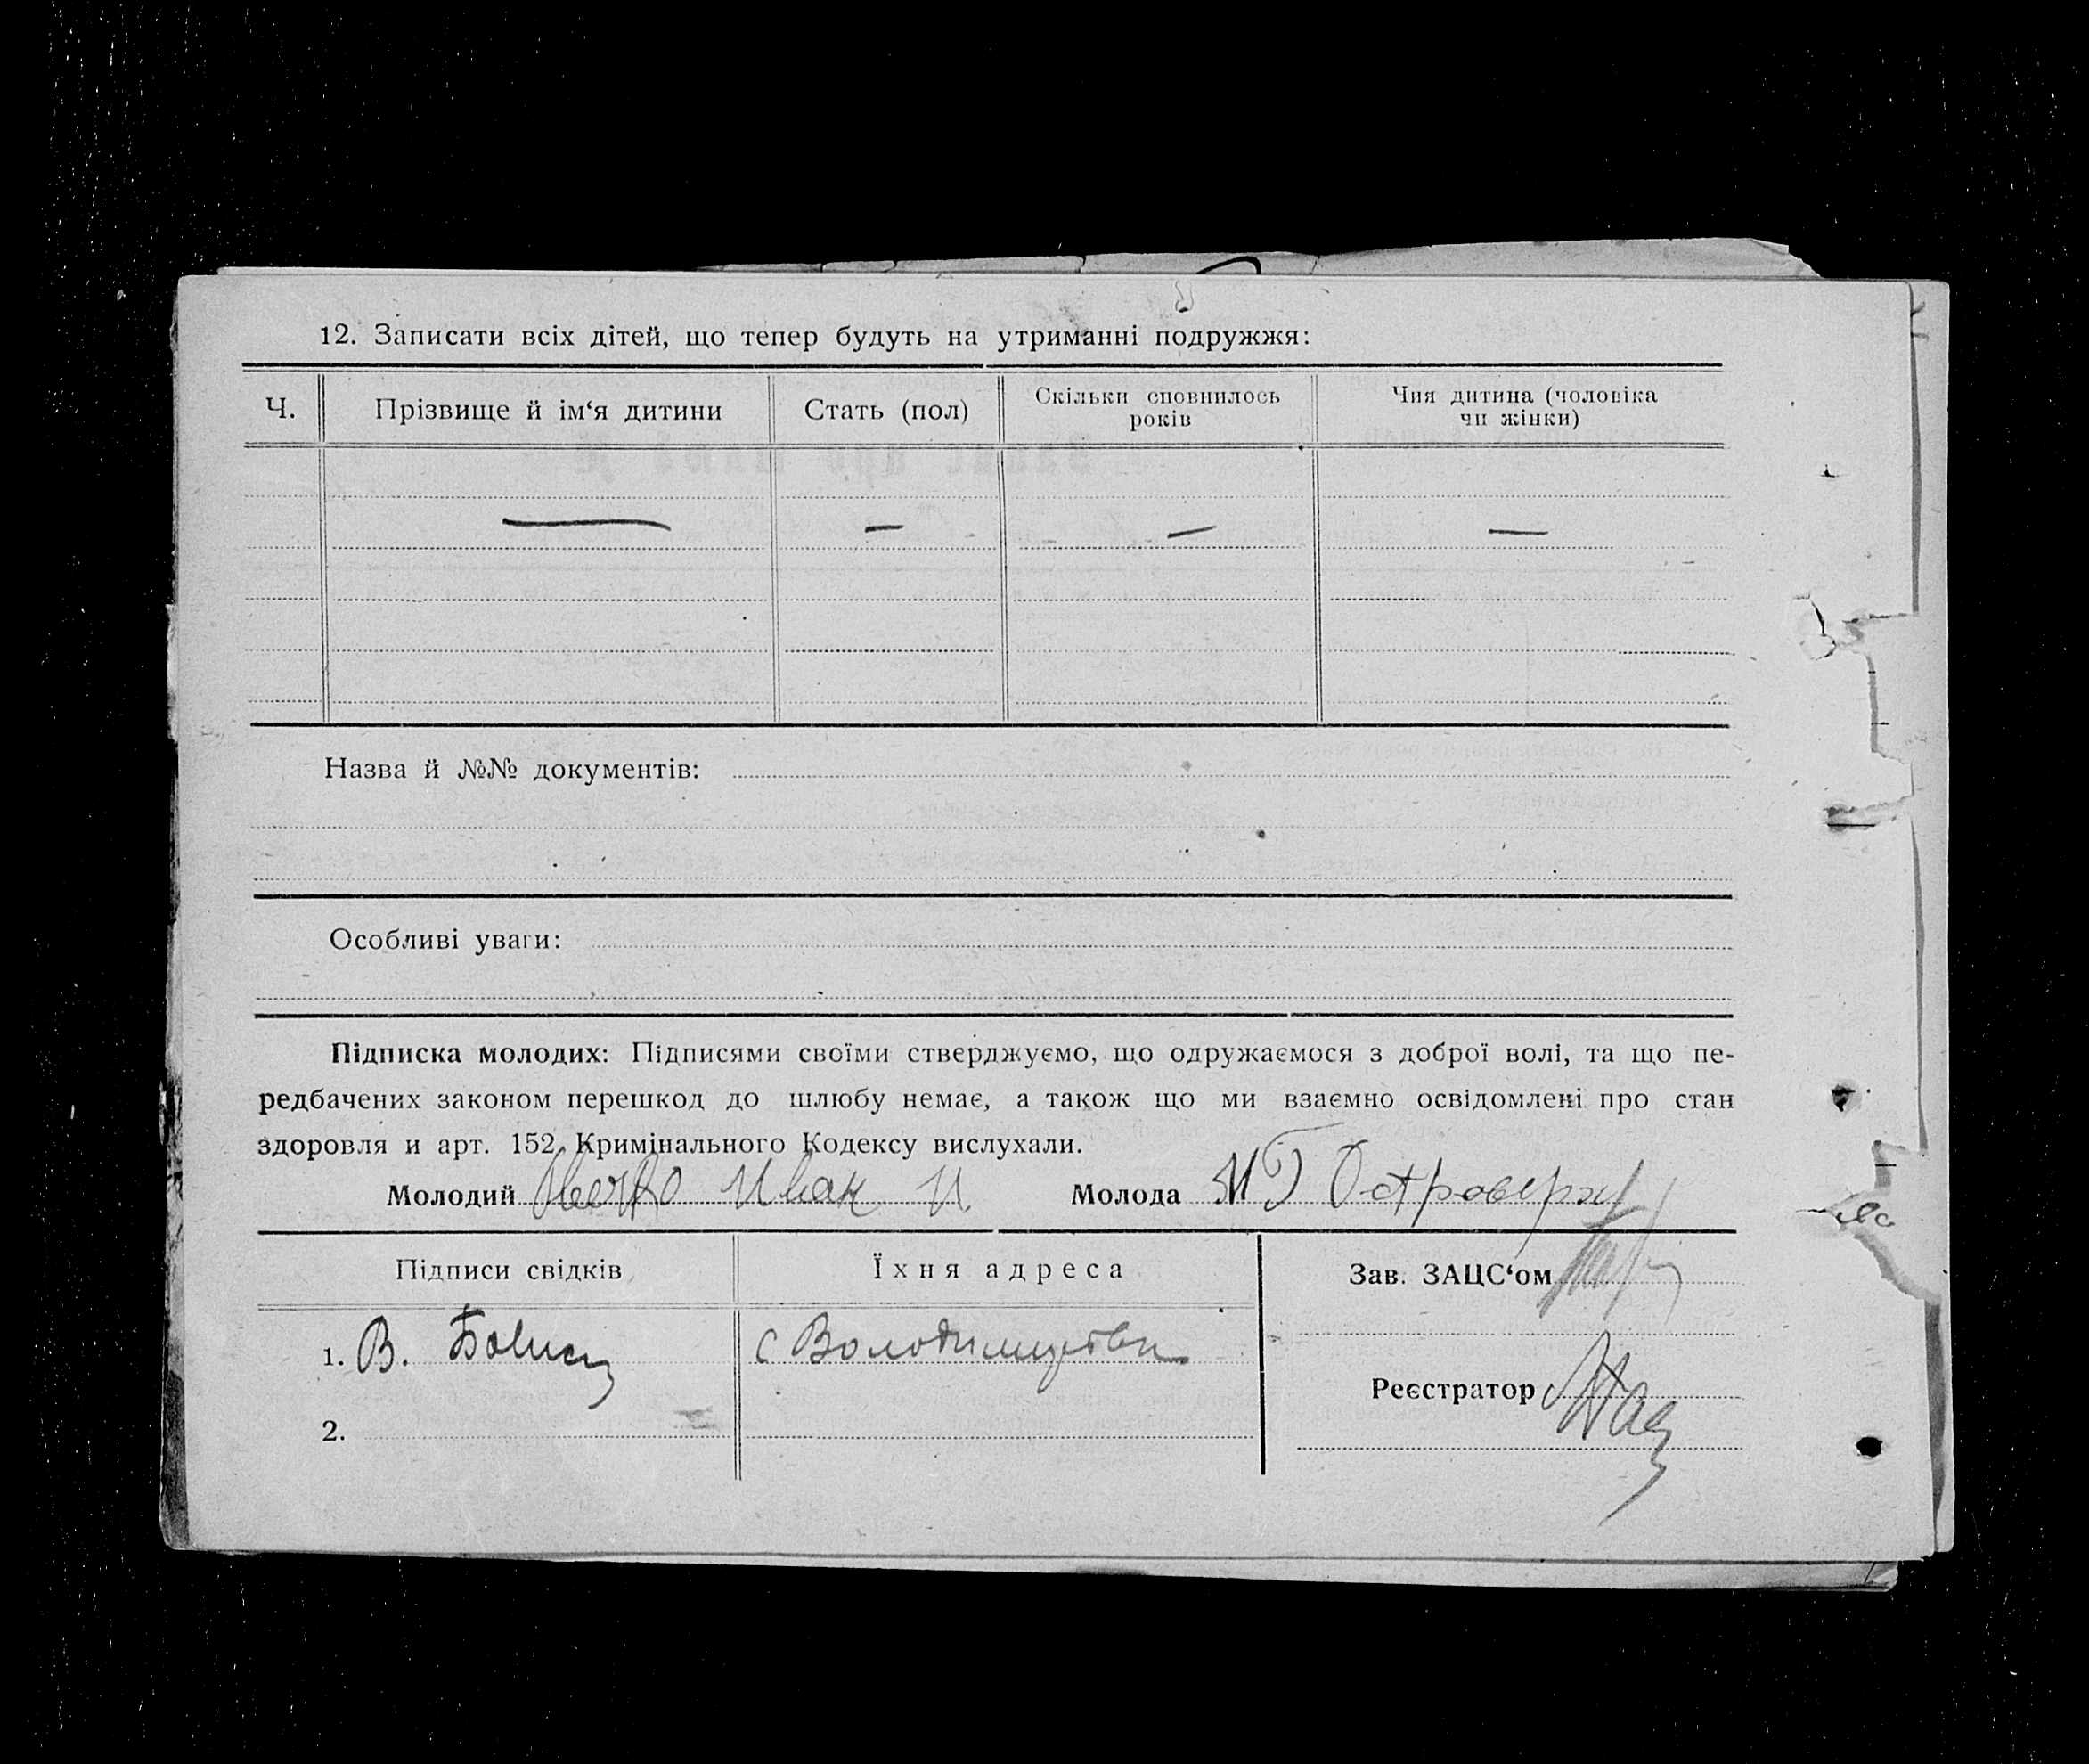 12. Записати всіх дітей, що тепер будуть на утриманні подружжя:
Ч. Прізвище й ім‘я дитини Стать (пол) Скільки сповнилось років Чия дитина (чоловіка чи жінки)
— — — —
Назва й №№ документів:
Особливі уваги:
Підписка молодих: Підписями своїми стверджуємо, що одружаємося з доброї волі, та що пе-
редбачених законом перешкод до шлюбу немає, а також що ми взаємно освідомлені про стан
здоровля и арт. 152 Кримінального Кодексу вислухали.
Молодий Иван И Молода М Г Островерх
Підписи свідків Їхня адреса Зав. ЗАЦС‘ом
1. В. с
Реєстратор
2.